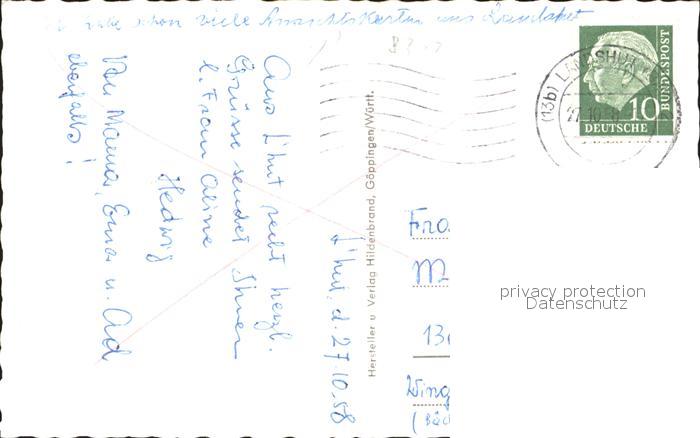 habe schon viele Ansichtskarten aus Landshut
L'hut, d. 27.10.58
Aus L'hut recht herzl.
Grüsse sendet Ihnen
l. Frau Aline
Hedwig
Von Mama, Erna u. Ad
ebenfalls!
Hersteller u. Verlag Hildenbrand, Göppingen/Württ.
(13b) LANDSHUT
27.10.
10
DEUTSCHE
BUNDESPOST
Fra
M
13
Wing
(Bad
privacy protection
Datenschutz